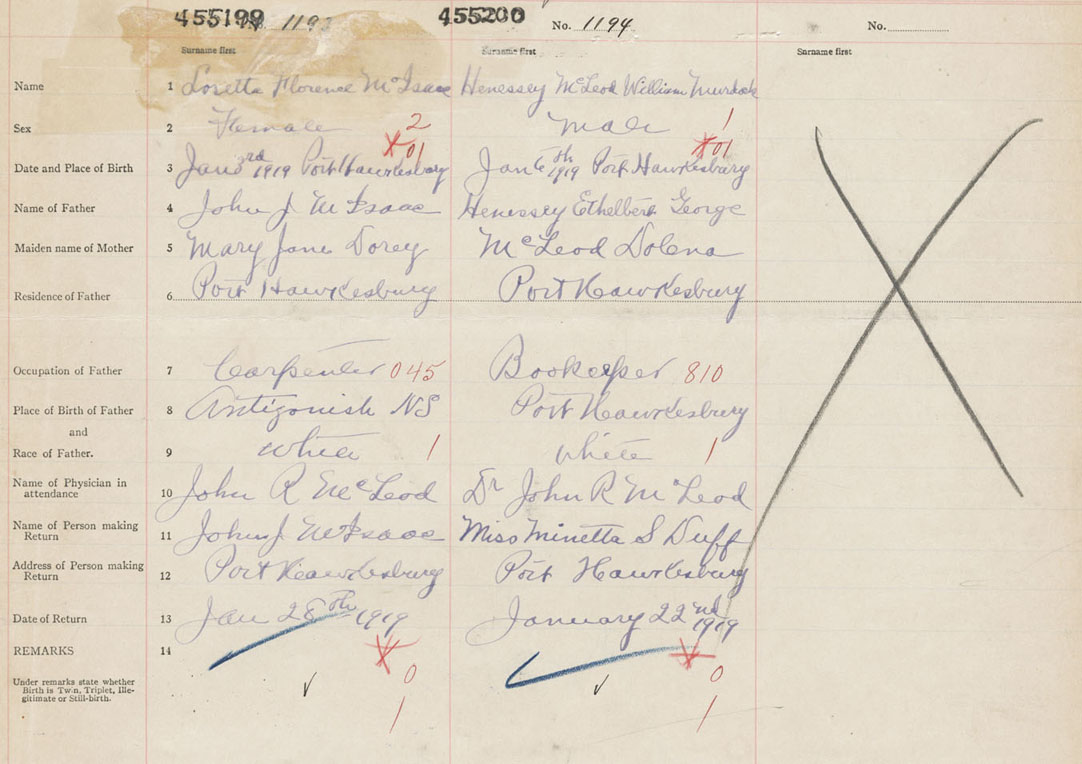 455199 1193 455200 No. 1194 No.
Surname first Surname first Surname first
Name 1 Loretta Florence McIsaac Henessey McLeod William Murdock
Sex 2 Female 2 Male 1
X01 X01
Date and Place of Birth 3 Jan 3rd 1919 Port Hawkesbury Jan 6th 1919 Port Hawkesbury
Name of Father 4 John J. McIsaac Henessey Ethelbert George
Maiden name of Mother 5 Mary Jane Dorey McLeod Dolena
Residence of Father 6 Port Hawkesbury Port Hawkesbury
Occupation of Father 7 Carpenter 045 Bookeeper 810
Place of Birth of Father 8 Antigonish NS Port Hawkesbury
and
Race of Father. 9 White 1 White 1
Name of Physician in
attendance 10 John R McLeod Dr John R McLeod
Name of Person making
Return 11 John J. McIsaac Miss Minetta S Duff
Address of Person making
Return 12 Port Hawkesbury Port Hawkesbury
Date of Return 13 Jan 28th 1919 January 22nd 1919
REMARKS 14 X X
Under remarks state whether 0 0
Birth is Twin, Triplet, Ille-
gitimate or Still-birth.
1 1